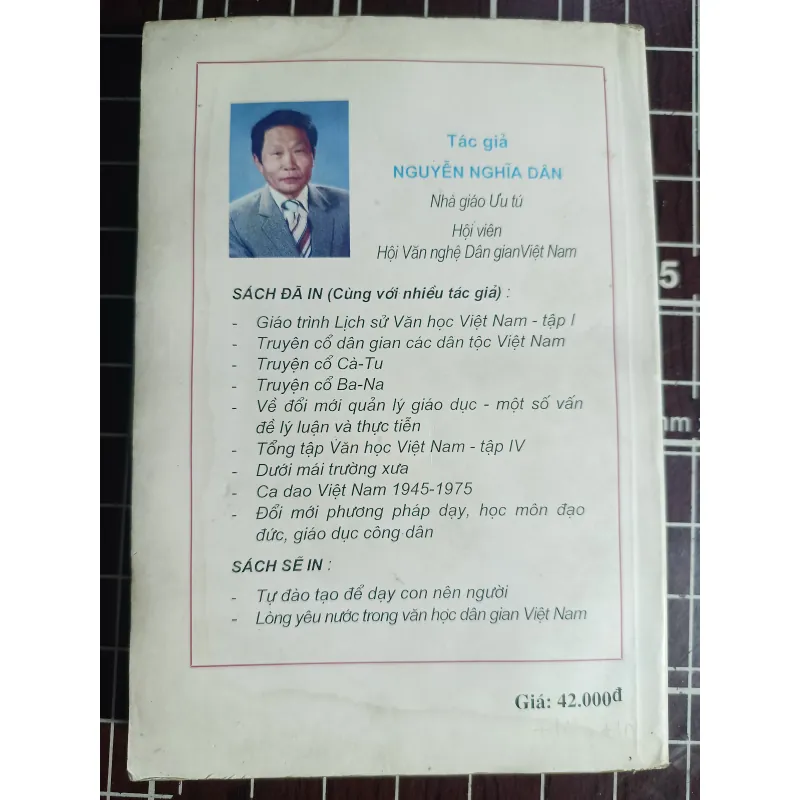 Tác giả
NGUYỄN NGHĨA DÂN
Nhà giáo Ưu tú
Hội viên
Hội Văn nghệ Dân gianViệt Nam
SÁCH ĐÃ IN (Cùng với nhiều tác giả) :
- Giáo trình Lịch sử Văn học Việt Nam - tập I
- Truyện cổ dân gian các dân tộc Việt Nam
- Truyện cổ Cà-Tu
- Truyện cổ Ba-Na
- Về đổi mới quản lý giáo dục - một số vấn
đề lý luận và thực tiễn
- Tổng tập Văn học Việt Nam - tập IV
- Dưới mái trường xưa
- Ca dao Việt Nam 1945-1975
- Đổi mới phương pháp dạy, học môn đạo
đức, giáo dục công dân
SÁCH SẼ IN :
- Tự đào tạo để dạy con nên người
- Lòng yêu nước trong văn học dân gian Việt Nam
Giá: 42.000đ
5